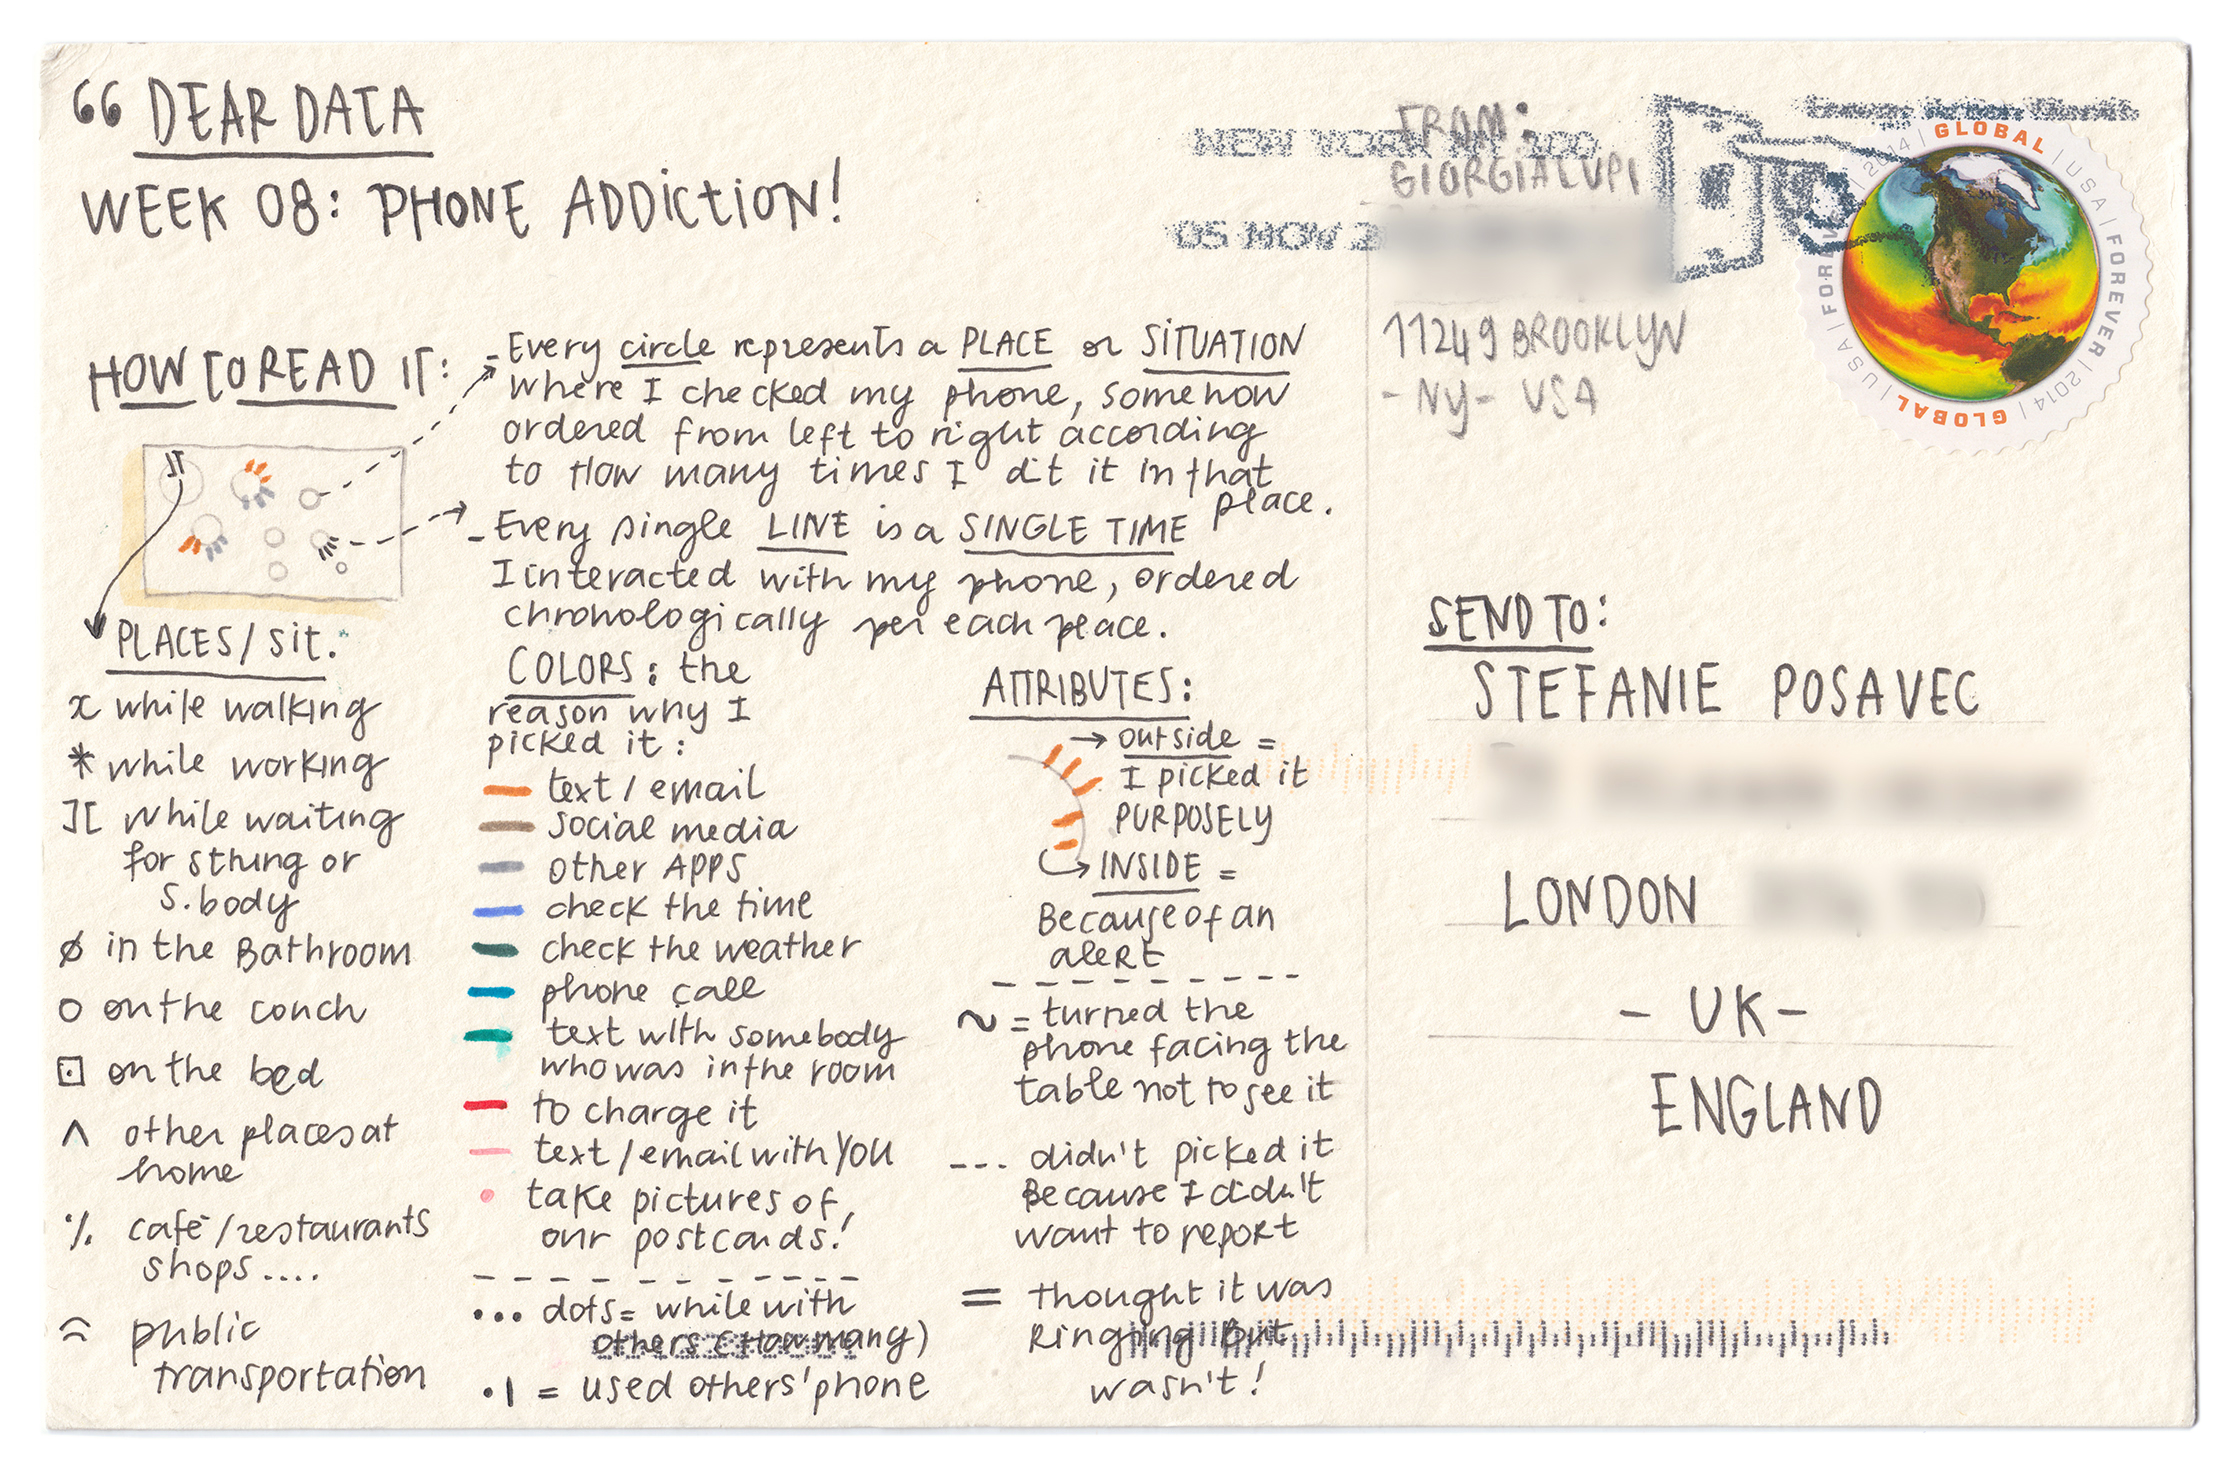 DEAR DATA
WEEK 08: PHONE ADDICTION!
HOW TO READ IT:
- Every circle represents a PLACE or SITUATION
where I checked my phone, somehow
ordered from left to right according
to How many times I dit it in that
place.
- Every single LINE is a SINGLE TIME
I interacted with my phone, ordered
chronologically per each place.
PLACES/ sit.
x while walking
* while working
][ while waiting
for sthing or
s.body
ø in the Bathroom
o on the couch
⊡ on the bed
^ other places at
home
·/. café/restaurants
shops....
public
transportation
COLORS: the
reason why I
picked it:
text / email
social media
other APPS
check the time
check the weather
phone call
text with somebody
who was in the room
to charge it
text / email with YOU
take pictures of
our postcards!
... dots= while with
others (How many)
.| = used others' phone
ATTRIBUTES:
→ outside =
I picked it
PURPOSELY
→ INSIDE =
Because of an
alert
~ = turned the
phone facing the
table not to see it
--- didn't picked it
Because I didn't
want to report
= thought it was
Ringing But
wasn't!
FROM:
GIORGIA LUPI
11249 BROOKLYN
- NY - USA
NEW YORK NY 100
05 NOV 2
GLOBAL | USA | FOREVER | 2014 | GLOBAL | USA | FOREVER | 2014
SEND TO:
STEFANIE POSAVEC
LONDON
- UK -
ENGLAND